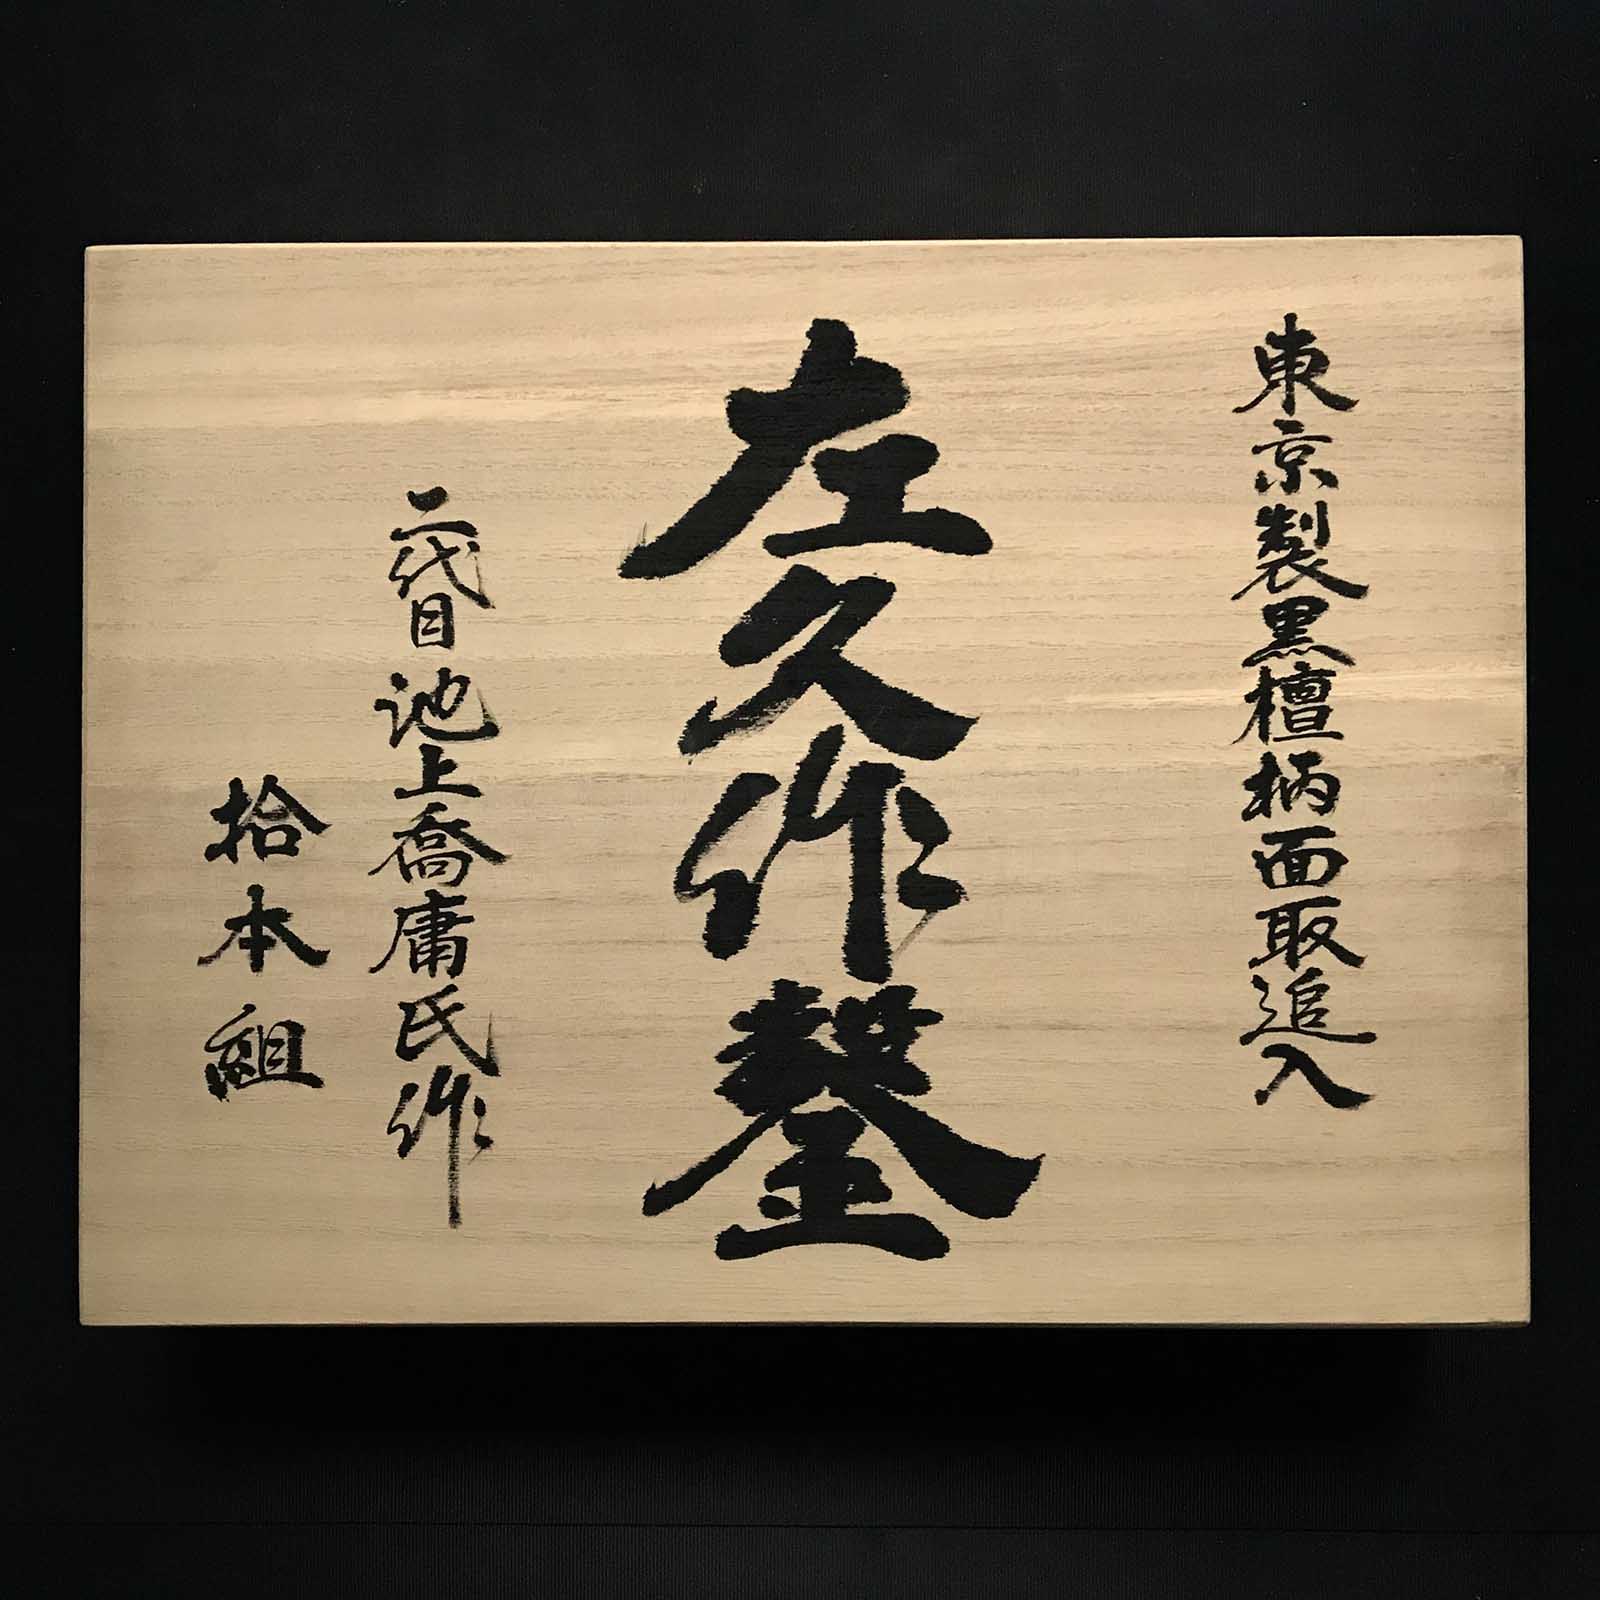 東京製黒檀柄面取追入
左久作鑿
二代目池上喬庸氏作
拾本組